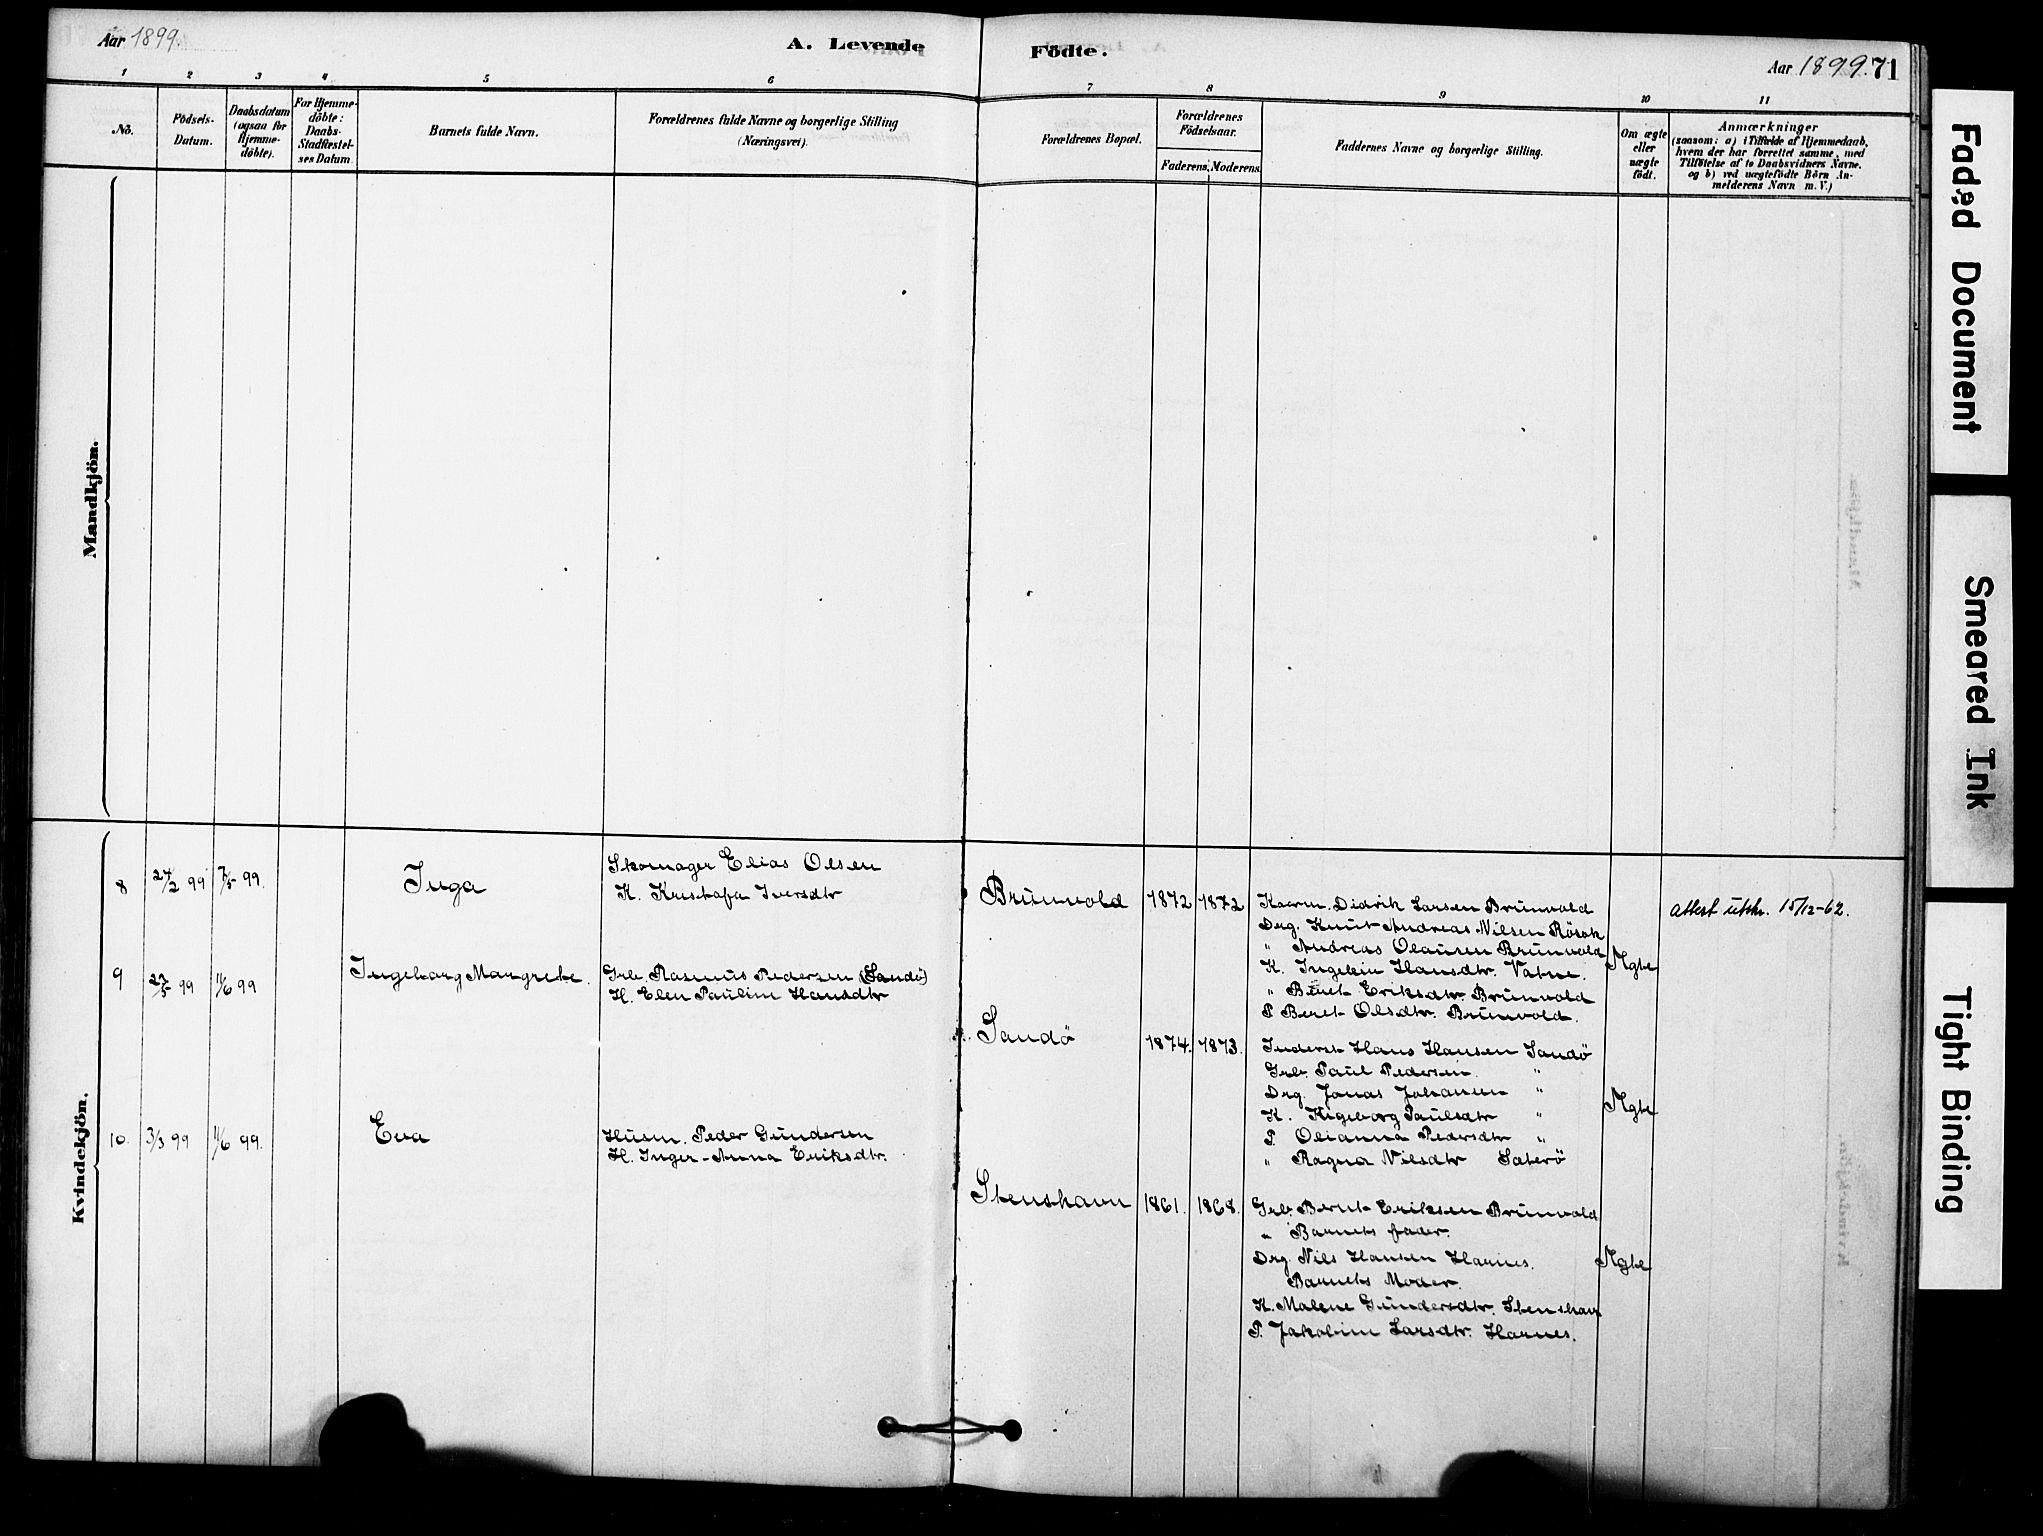 Aar 1899.
A. Levende Födte.
Aar 1899. 71
1 2 3 4 5 6 7 8 9 10 11
No.
Födsels-
Datum.
Daabsdatum
(ogsaa for
Hjemme-
döbte).
For Hjemme-
döbte:
Daabs-
Stadfæstel-
ses Datum.
Barnets fulde Navn.
Forældrenes fulde Navne og borgerlige Stilling
(Næringsvei).
Forældrenes Bopæl.
Forældrenes
Födselsaar.
Faderens. Moderens.
Faddernes Navne og borgerlige Stilling.
Om ægte
eller
uægte
födt.
Anmærkninger
(saasom: a) i Tilfælde af Hjemmedaab,
hvem der har forrettet samme, med
Tilföielse af to Daabsvidners Navne.
og b) ved uægtefödte Börn An-
melderens Navn m. V.)
Mandkjön.
Kvindekjön.
8 27/2 99 7/5 99. Inga
Skomager Elias Olsen
K. Kristofa Iversdtr
Brunvold 1872 1872
Kaarm. Didrik Larsen Brunvold
Drg. Knut Andreas Nilsen Rösok
" Andreas Olausen Brunvold
K. Ingebin Hansdtr. Vatne.
" Beret Eriksdtr. Brunvold
P Beret Olsdtr. Brunvold.
Ægte
attest utskr. 15/12-62.
9 99 11/6 99 Ingeborg Margrete.
Grb. Rasmus Pedersen (Sandö)
H. Elen Pauline Hansdtr
Sandö 1874. 1873.
Inderst Hans Hansen Sandö
Grb. Paul Pedersen "
Drg. Jonas Johansen "
K. Ingeborg Paulsdtr "
P. Olianna Pedersdtr "
" Ragna Nilsdtr Saterö
Ægte
10. 3/3 99 11/6 99. Eva
Husm. Peder Gundersen
H. Inger-Anna Eriksdtr.
Stenshavn 1861. 1868.
Grb. Bernt Eriksen Brunvold
" Barnets fader.
Drg. Nils Hansen Harnes.
Barnets Moder.
K. Malene Gundersdtr. Stenshavn
P. Jakobine Larsdtr. Harnes.
Ægte
Faded Document
Smeared Ink
Tight Binding